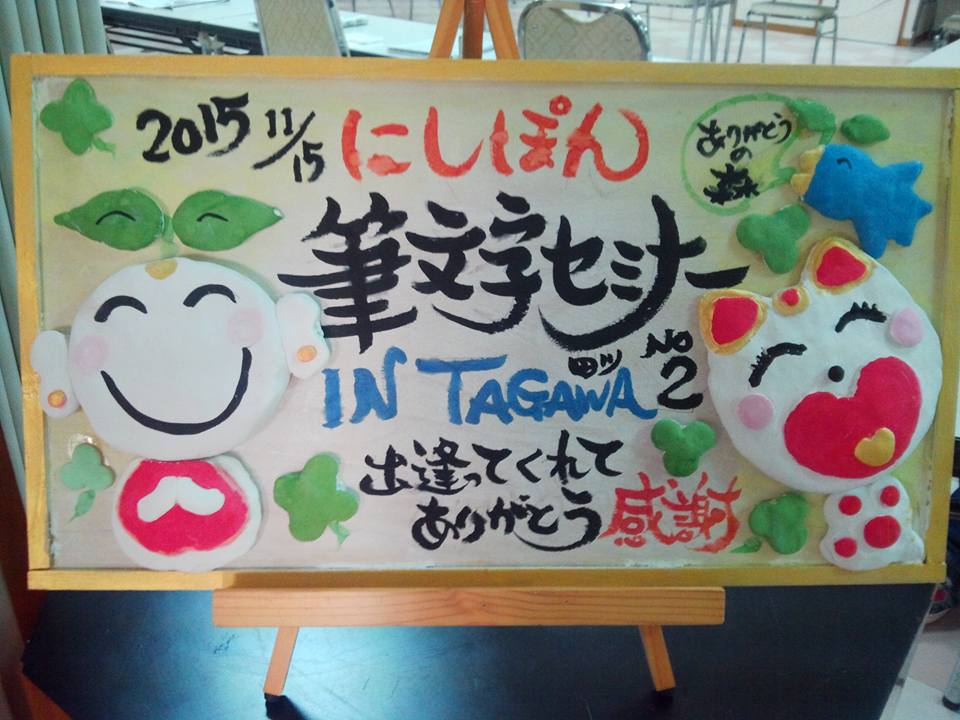 2015 11/15 にしぽん
ありがとう
の
森
筆文字セミナー
IN TAGAWA No2
出逢ってくれて
ありがとう 感謝